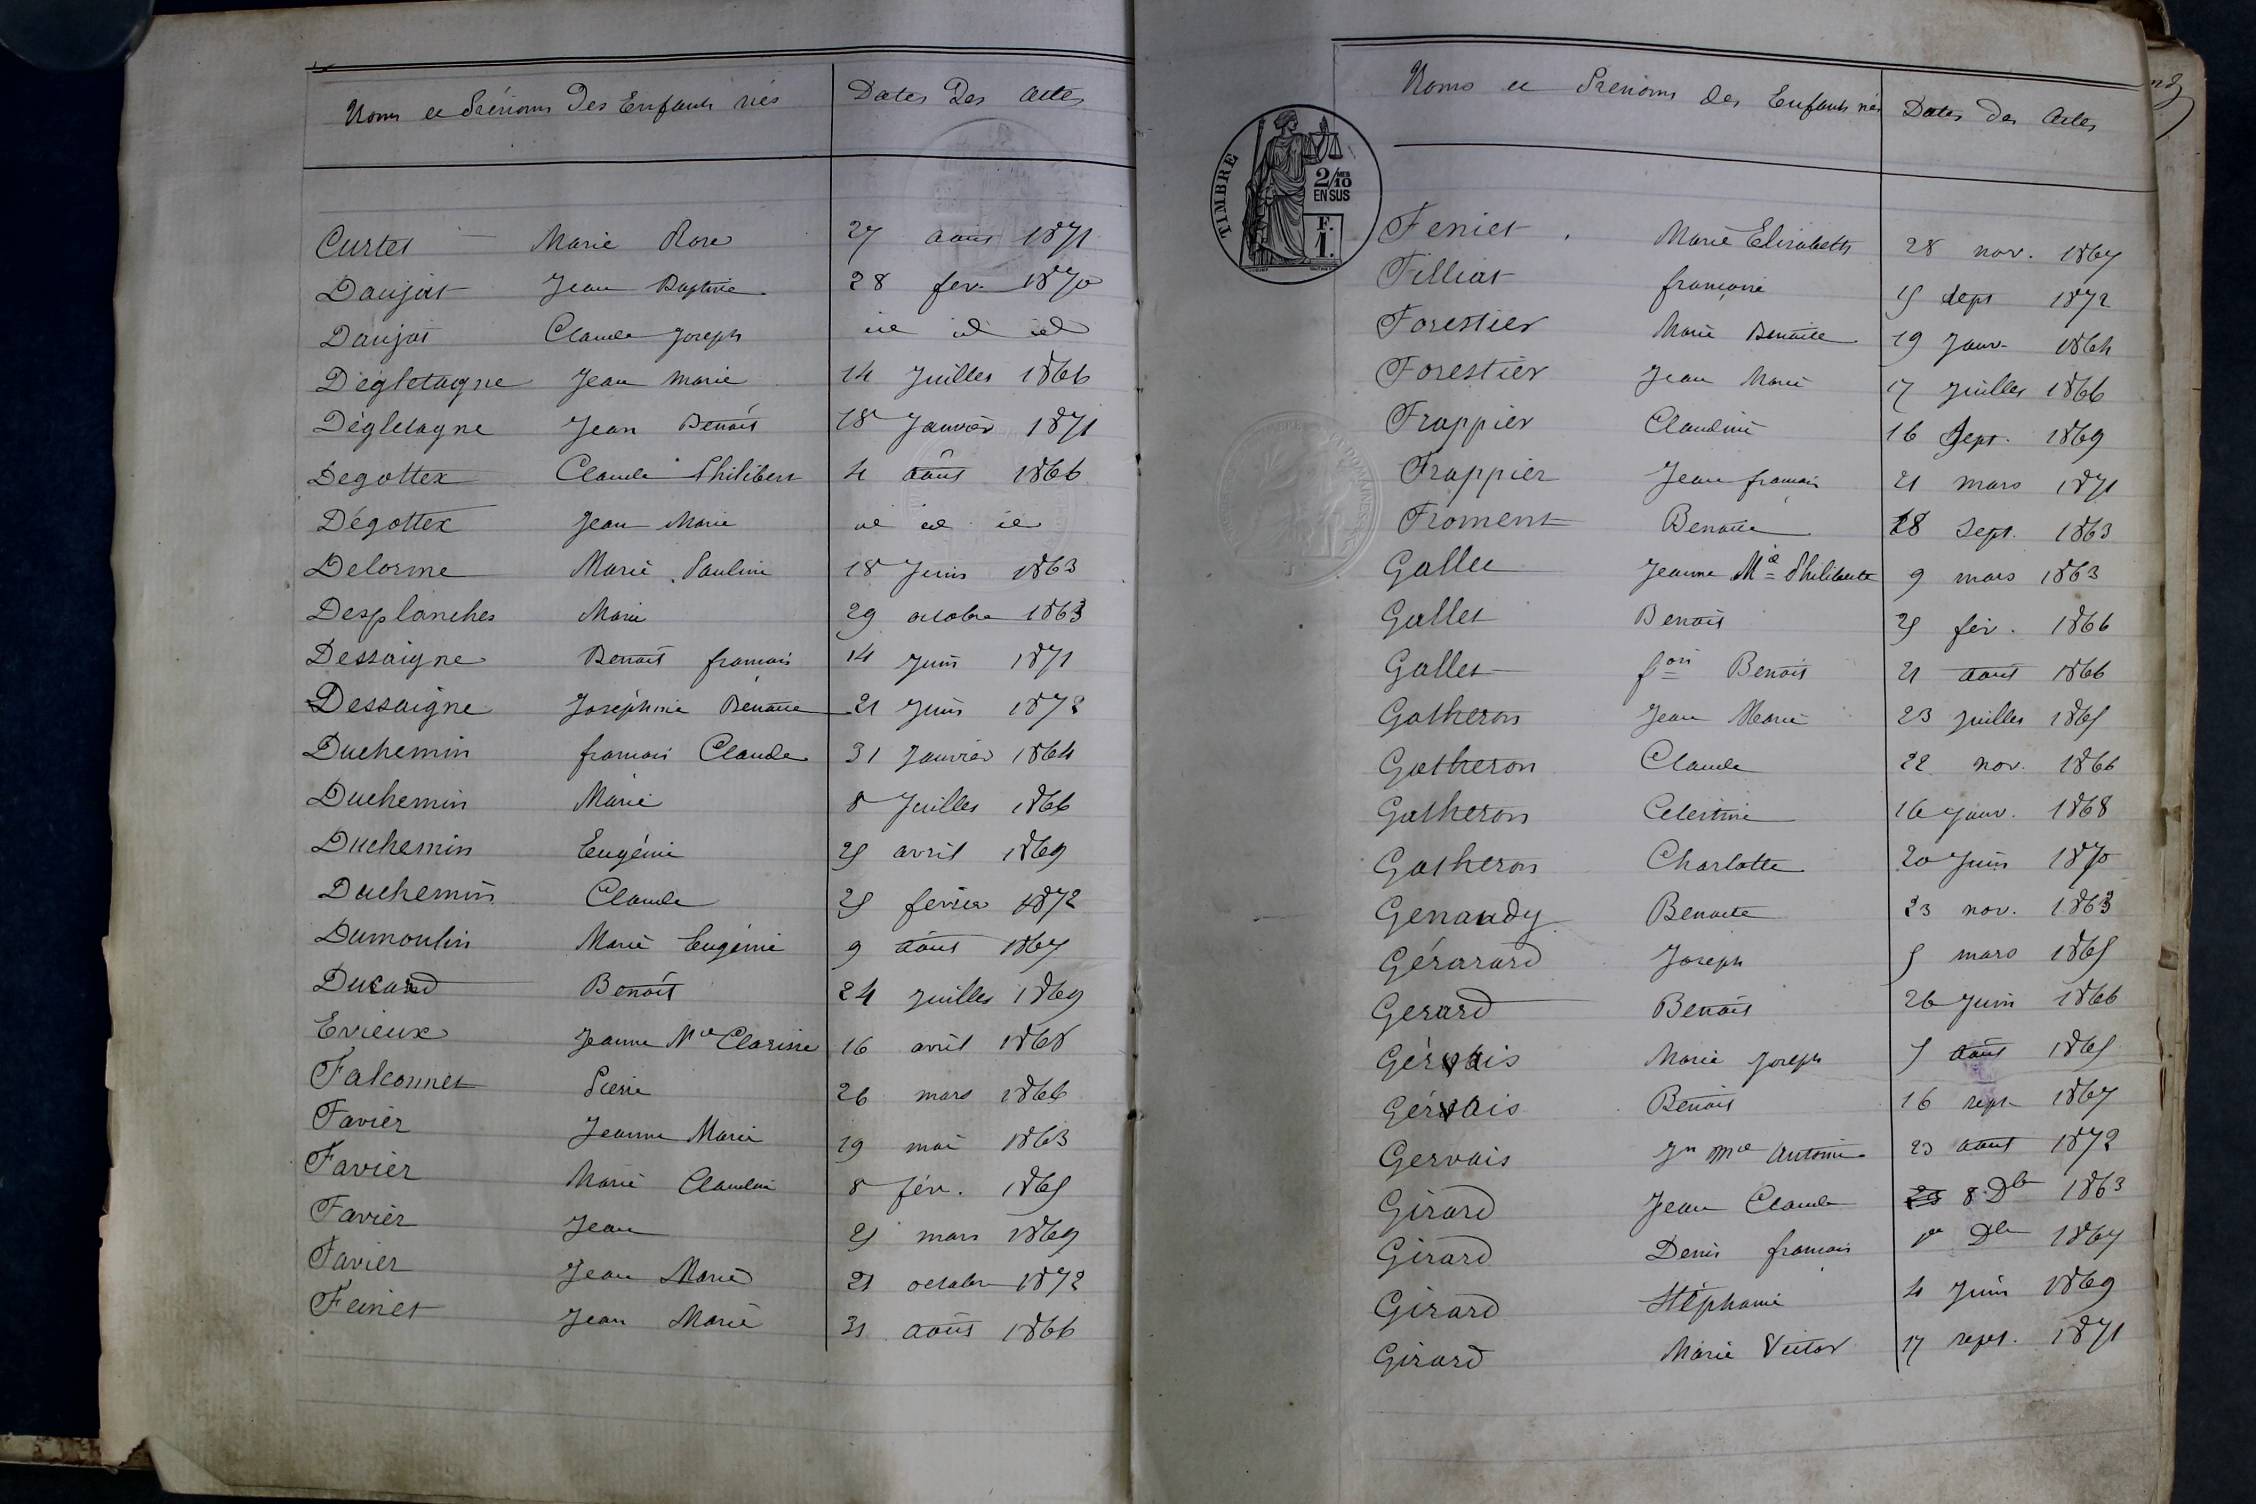 Noms et Prénoms Des Enfants nés Dates Des Actes
Curtet Marie Rose 27 août 1871
Daujat Jean Baptiste 28 fév. 1870
Daujat Claude Joseph id id id
Dégletagne Jean Marie 14 Juillet 1866
Dégletagne Jean Benoit 18 Janvier 1871
Degottex Claude Philibert 4 août 1866
Dégottex Jean Marie id id id
Delorme Marie Pauline 18 Juin 1863
Desplanches Marie 29 octobre 1863
Dessaigne Benoit françois 14 Juin 1871
Dessaigne Joséphine Benoite 21 Juin 1872
Duchemin françois Claude 31 Janvier 1864
Duchemin Marie 8 Juillet 1866
Duchemin Eugénie 25 avril 1869
Duchemin Claude 25 février 1872
Dumoulin Marie Eugénie 9 août 1867
Ducard Benoit 24 juillet 1869
Evieux Jeanne Mie Clarisse 16 avril 1868
Falconnet Pierre 26 mars 1866
Favier Jeanne Marie 19 mai 1863
Favier Marie Claudine 8 fév. 1865
Favier Jean 25 mars 1869
Favier Jean Marie 21 octobre 1872
Feniet Jean Marie 31 août 1866
Noms et Prénoms des Enfants nés Dates Des Actes
TIMBRE
2/10 MES
EN SUS
F.
1.
Feniet Marie Elisabeth 28 nov. 1867
Filliat françoise 15 sept 1872
Forestier Marie Benoite 19 Janv. 1864
Forestier Jean Marie 17 Juillet 1866
Frappier Claudine 16 Sept. 1869
Frappier Jean françois 21 mars 1871
Froment Benoite 28 Sept. 1863
Gallet Jeanne Mie Philiberte 9 mars 1863
Gallet Benoit 25 fév. 1866
Gallet fois Benoit 21 août 1866
Gatheron Jean Marie 23 juillet 1865
Gatheron Claude 22 nov. 1866
Gatheron Celestine 16 Janv. 1868
Gatheron Charlotte 20 Juin 1870
Genaudy Benoite 23 nov. 1863
Gérarard Joseph 5 mars 1865
Gerard Benoit 26 Juin 1866
Gérvais Marie Joseph 5 août 1865
Gérvais Benoit 16 sept 1867
Gervais Jn Mie Antoine 23 août 1872
Girard Jean Claude 8 Dbre 1863
Girard Denis françois 1er Dbre 1867
Girard Stéphanie 4 Juin 1869
Girard Marie Victor 17 sept. 1871